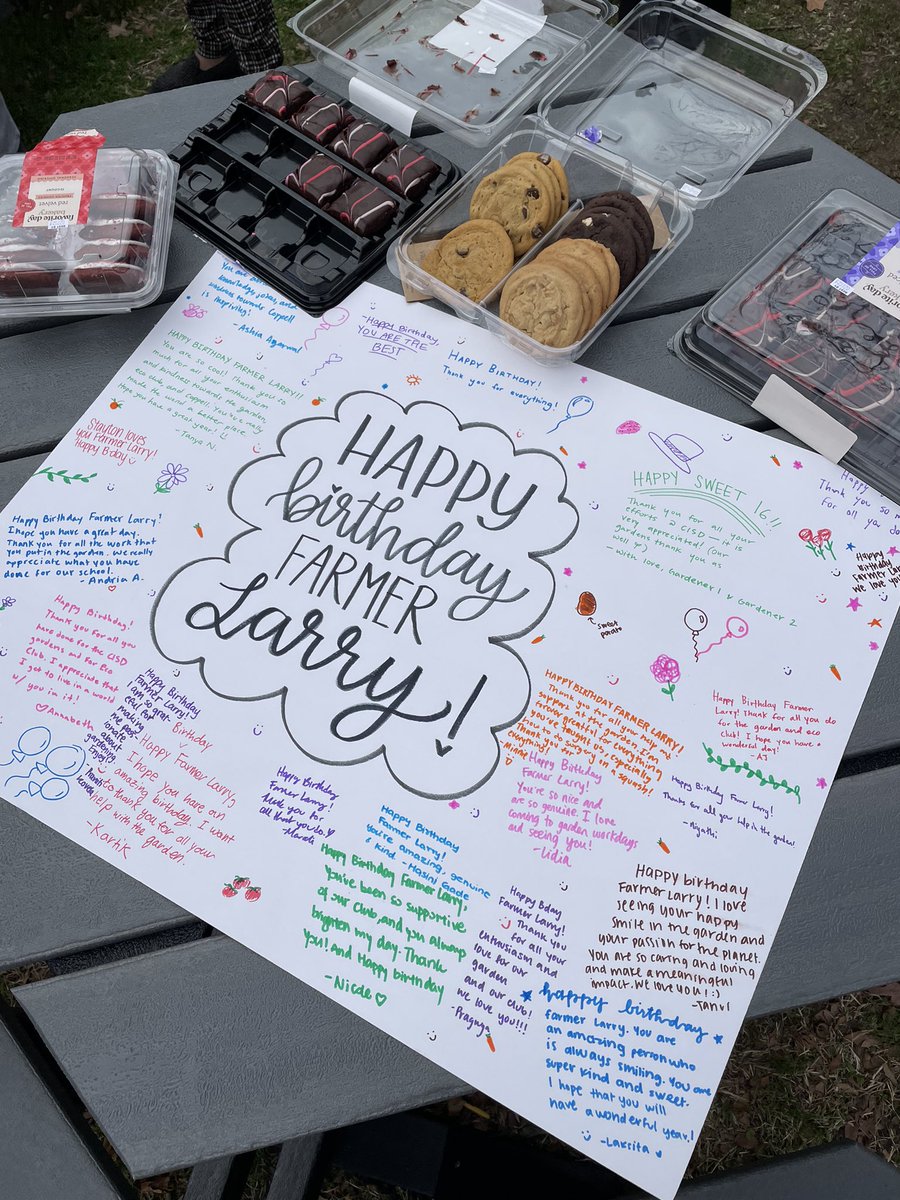 favorite day
bakery
red velvet
favorite day
You are
knowledge, jokes, and
kindness towards Coppell
is inspiring!
- Ashna Agarwal
- Happy Birthday,
YOU ARE THE
BEST
HAPPY BIRTHDAY!
Thank you for everything!
HAPPY BIRTHDAY FARMER LARRY!!
You are so cool! Thank you so
much for all your enthusiasm
and kindness towards the garden,
eco club, and Coppell. You've really
made the world a better place.
Hope you have a great year!
- Tanya N.
Slayton loves
you Farmer Larry!
Happy Bday
HAPPY
birthday
FARMER
Larry!
HAPPY SWEET 16!!
Thank you for all your
efforts 2 CISD - it is
very appreciated! (our
gardens thank you as
well)
- With love, Gardener 1 & Gardener 2
Thank you so
For all you
Happy
Birthday
Farmer
We love you!
Happy Birthday Farmer Larry!
I hope you have a great day.
Thank you for all the work that
you put in the garden. We really
appreciate what you have
done for our school.
- Andria A.
sweet
potato
Happy Birthday!
Thank you for all you
have done for the CISD
gardens and for Eco
Club. I appreciate that
I get to live in a world
w/ you in it!
Annabeth
Happy Birthday
Farmer Larry!
I am so grateful for
making
me
about
gardening
Happy Birthday Farmer Larry,
I hope you have an
amazing birthday. I want
to thank you for all your
help with the garden.
- Kartik
Happy Birthday
Farmer Larry!
thank you for
all that you do
HAPPY BIRTHDAY FARMER LARRY!
Thank you for all your help and
support at the garden. I'm
forever grateful for everything
you've taught us, especially
how to do surgery on a squash!
Thank you for
everything!
Happy Birthday
Farmer Larry!
You're so nice and
are so genuine. I love
coming to garden workdays
and seeing you!
- Lidia
Happy Birthday Farmer
Larry! Thank you for all you do
for the garden and eco
club! I hope you have a
wonderful day!
- AJ
Happy Birthday Farmer Larry!
Thanks for all your help in the garden.
- Niyathi
Happy Birthday
Farmer Larry!
You're amazing, genuine
& kind - Hasini Gade
Happy Birthday Farmer Larry,
You've been so supportive
of our club, and you always
brighten my day. Thank
you! And Happy birthday
- Nicole
Happy Bday
Farmer Larry!
Thank you
for all your
enthusiasm and
love for our
garden
and our club!
we love you!!!
- Pragnya
Happy birthday
Farmer Larry! I love
seeing your happy
smile in the garden and
your passion for the planet.
You are so caring and loving
and make a meaningful
impact. We love you! :)
- Tanvi
happy birthday
farmer Larry. You are
an amazing person who
is always smiling. You are
super kind and sweet.
I hope that you will
have a wonderful year!
- Laksita